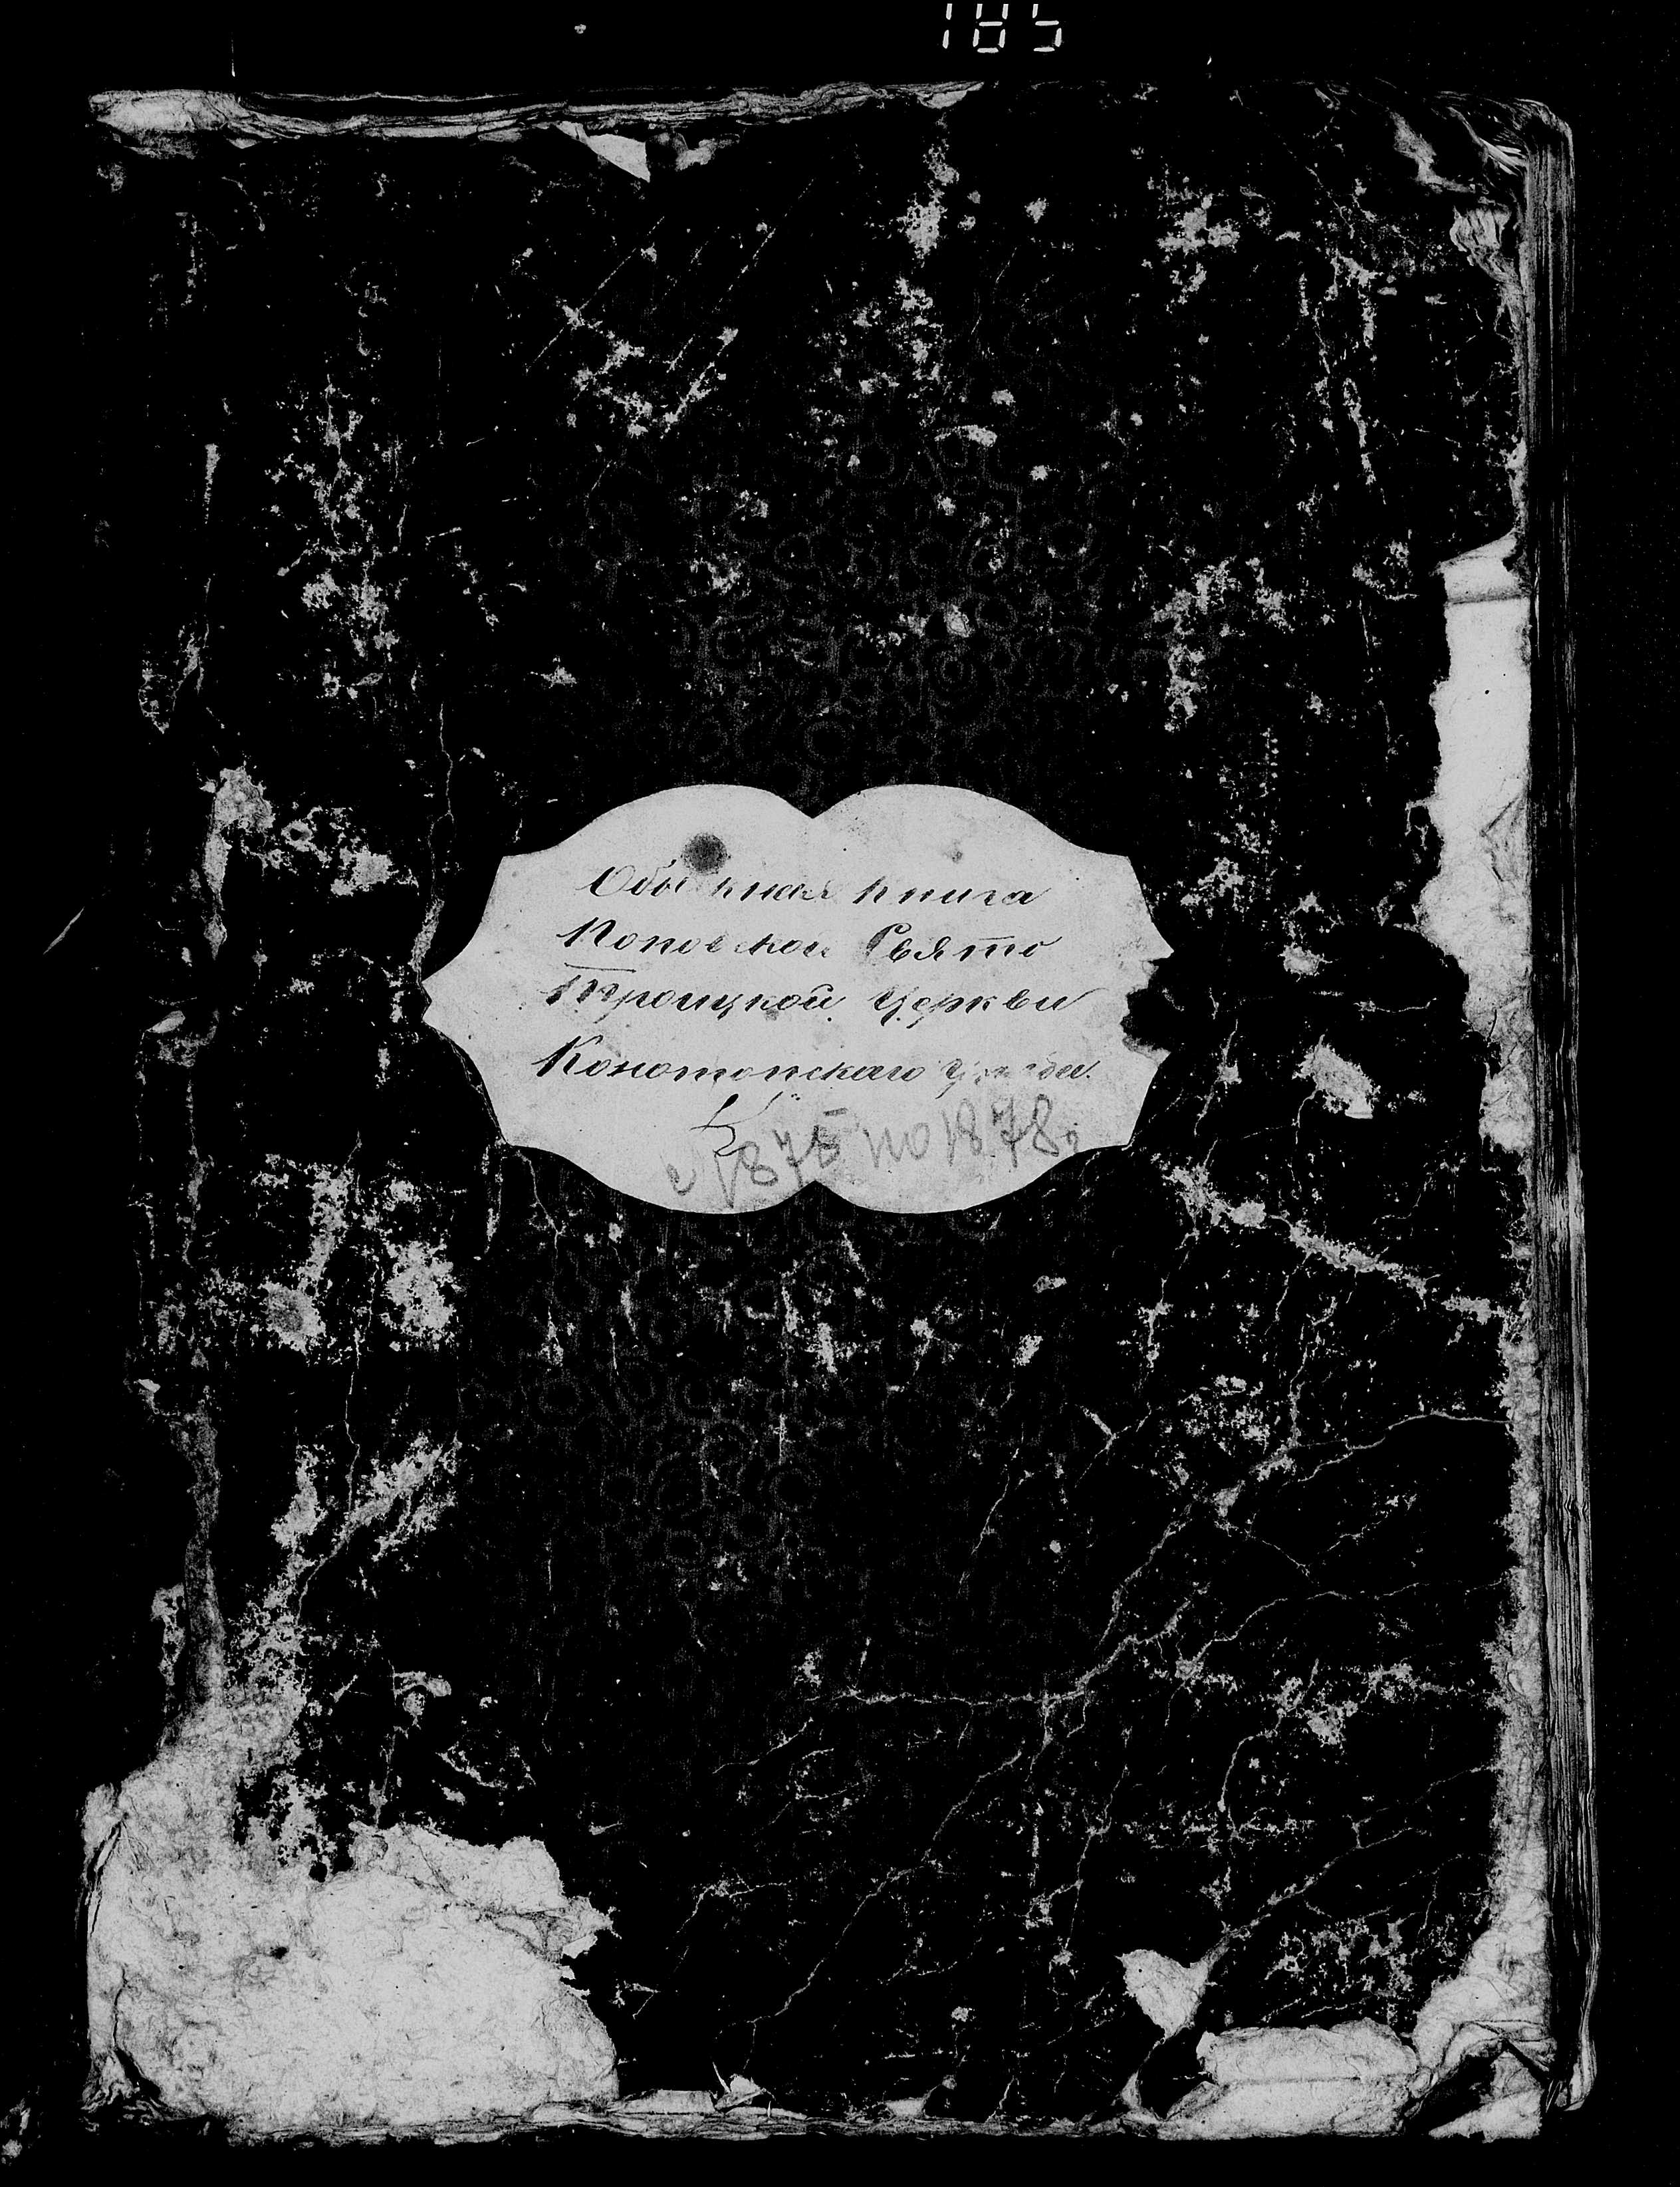 185
Обыскная книга
Поповской Свято
Троицкой Церкви
Конотопскаго уѣзда.
с 1875 по 1878г